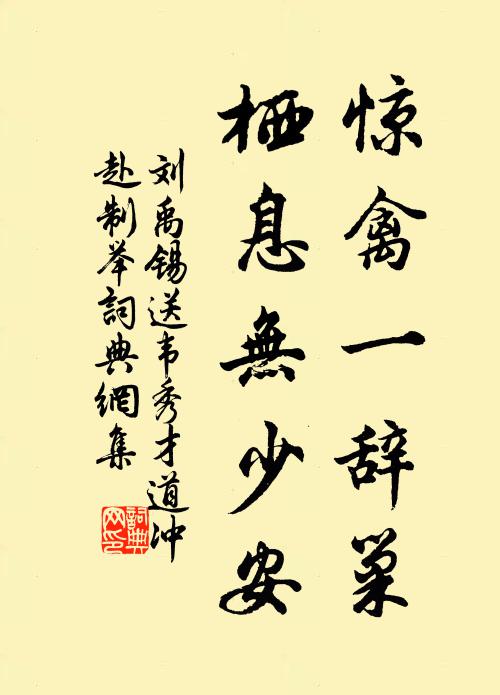 惊禽一辞巢
栖息無少安
刘禹锡送韦秀才道冲
赴制举詞典網集
詞典
网印